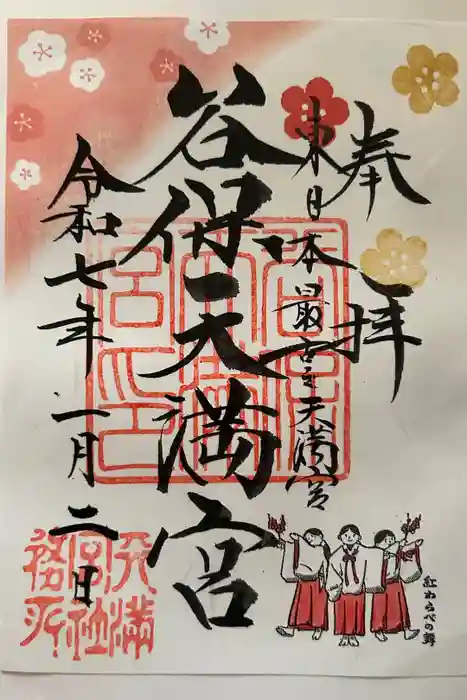 奉拝
東日本最古之天満宮
谷保天満宮
令和七年一月二日
紅わらべの舞
天満
宮社
務所